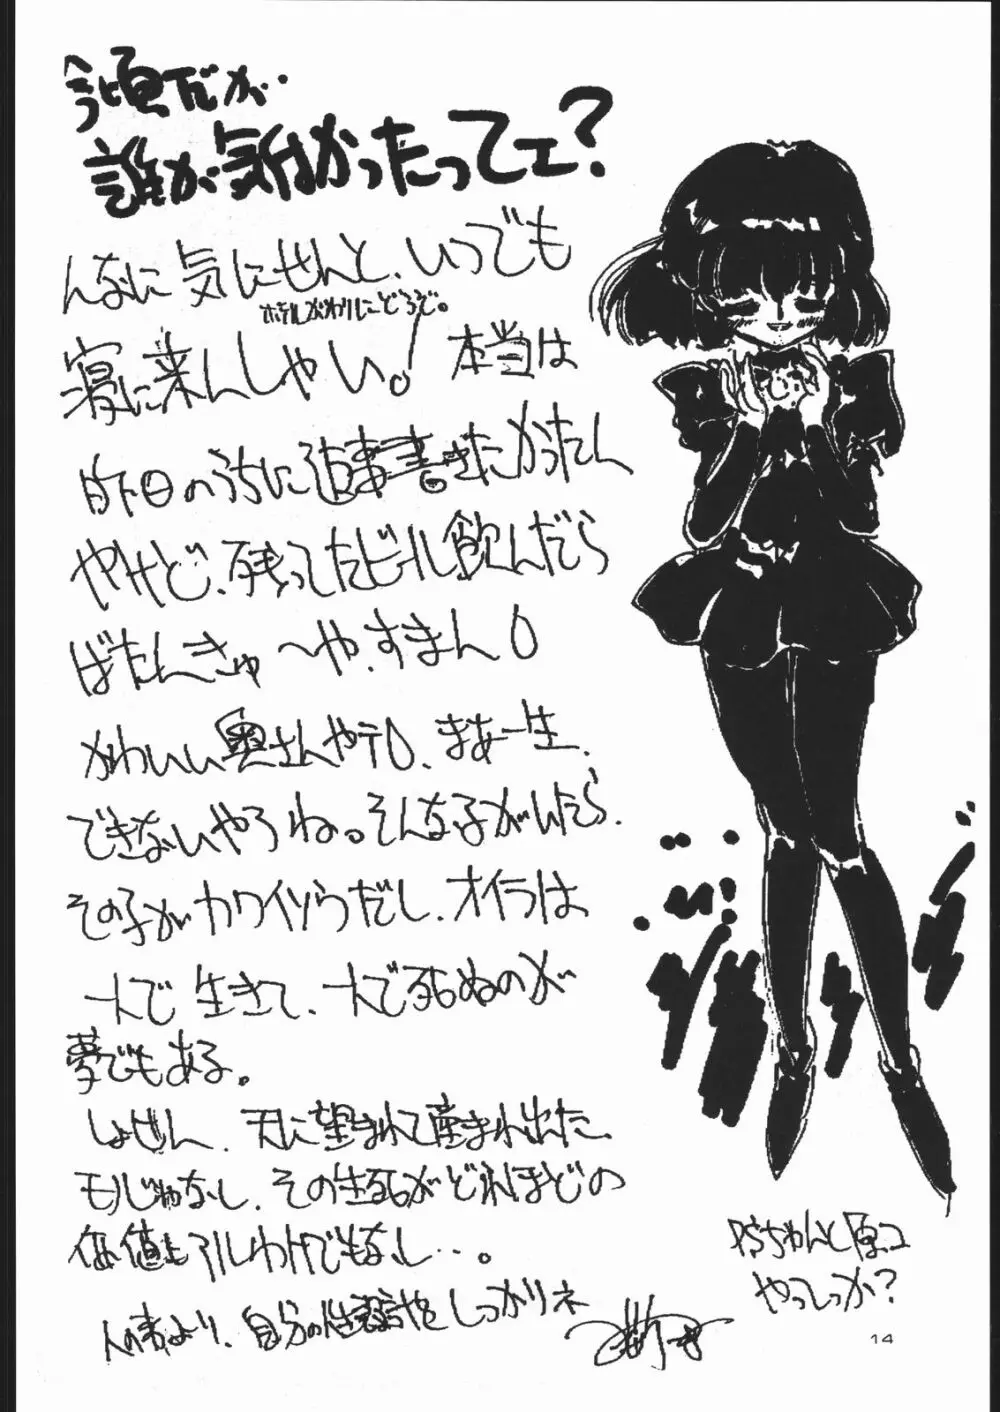 今頃だが・
誰が気付かったってェ?
んなに気にせんと、いつでも
ホテルがわりにどうぞ。
寝に来んしゃい。! 本当は
昨日のうちに返事書きたかったん
やけど、残ってたビール飲んだら
ばたんきゅ〜や、すまん
かわいい奥さんや子、まあ一生、
できないやろね。そんな子がいたら、
その子がカワイソウだし、オイラは
一人で生きて、一人で死ぬのが
夢でもある。
しょせん、天に望まれて産まれ出た
モノじゃなし、その生死がどれほどの
価値もアルわけでもなし・・・。
人の事より、自分の生設計をしっかりネ
PSちゃんと原コ
やってっか?
14